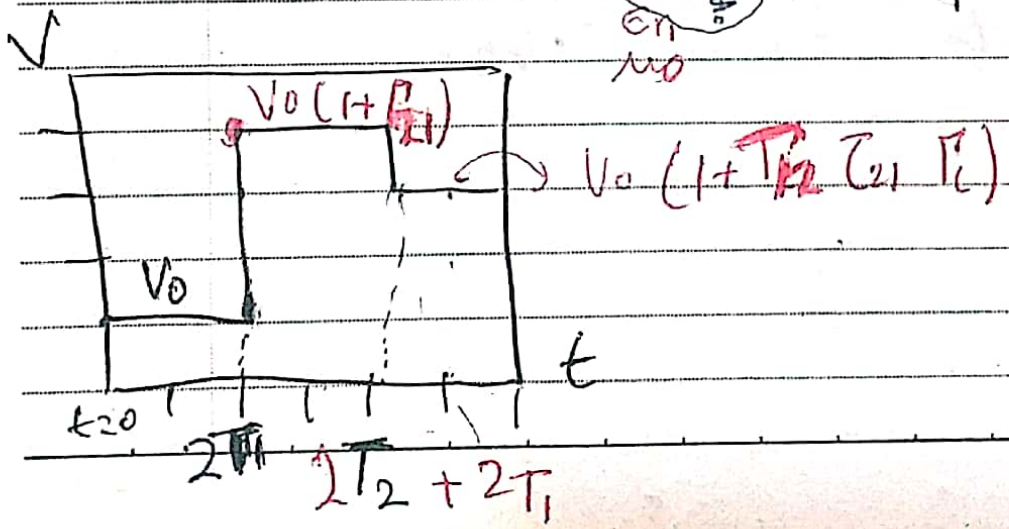 V
en
μ0
V0 (1+ Γ21)
V0 (1+ T12 τ21 ΓL)
V0
t
t=0
2T1
2T2 + 2T1